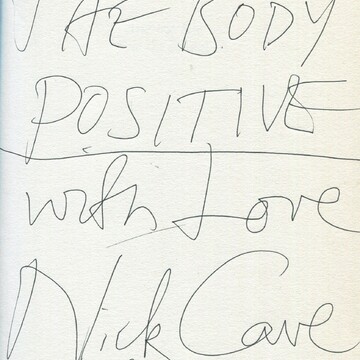 THE BODY
POSITIVE
with Love
Nick Cave